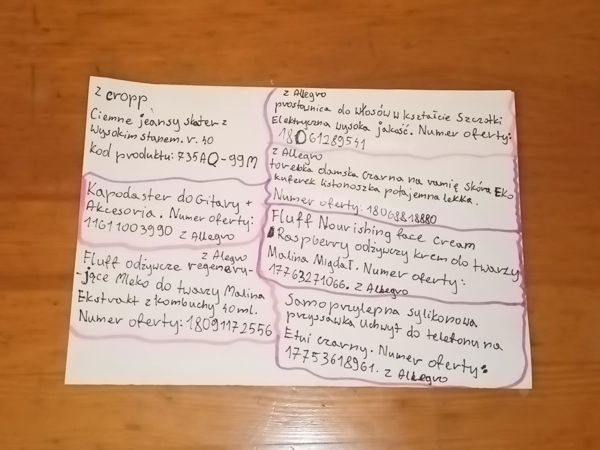 z cropp
Ciemne jeansy skater z
Wysokim stanem. r. 40
kod produktu: 735AQ-99M
Kapodaster do Gitary +
Akcesoria. Numer oferty:
11611003990 z Allegro
z Alegro
Fluff odżywcze regeneru-
-jące Mleko do twarzy Malina
Ekstrakt z kombuchy 40ml.
Numer oferty: 18091172556
z Allegro
prostownica do włosów w kształcie Szczotki
Elektryczna wysoka jakość. Numer oferty:
18061289541
z Allegro
torebka damska czarna na ramię skóra Eko
kuferek listonoszka pojemna lekka.
Numer oferty: 18068818880
Fluff Nourishing face cream
Raspberry odżywczy krem do twarzy
Malina Migdał. Numer oferty:
17763271066. z Allegro
Samoprzylepna sylikonowa
przyssawka uchwyt do telefonu na
Etui czarny. Numer oferty:
17753618961. z Allegro